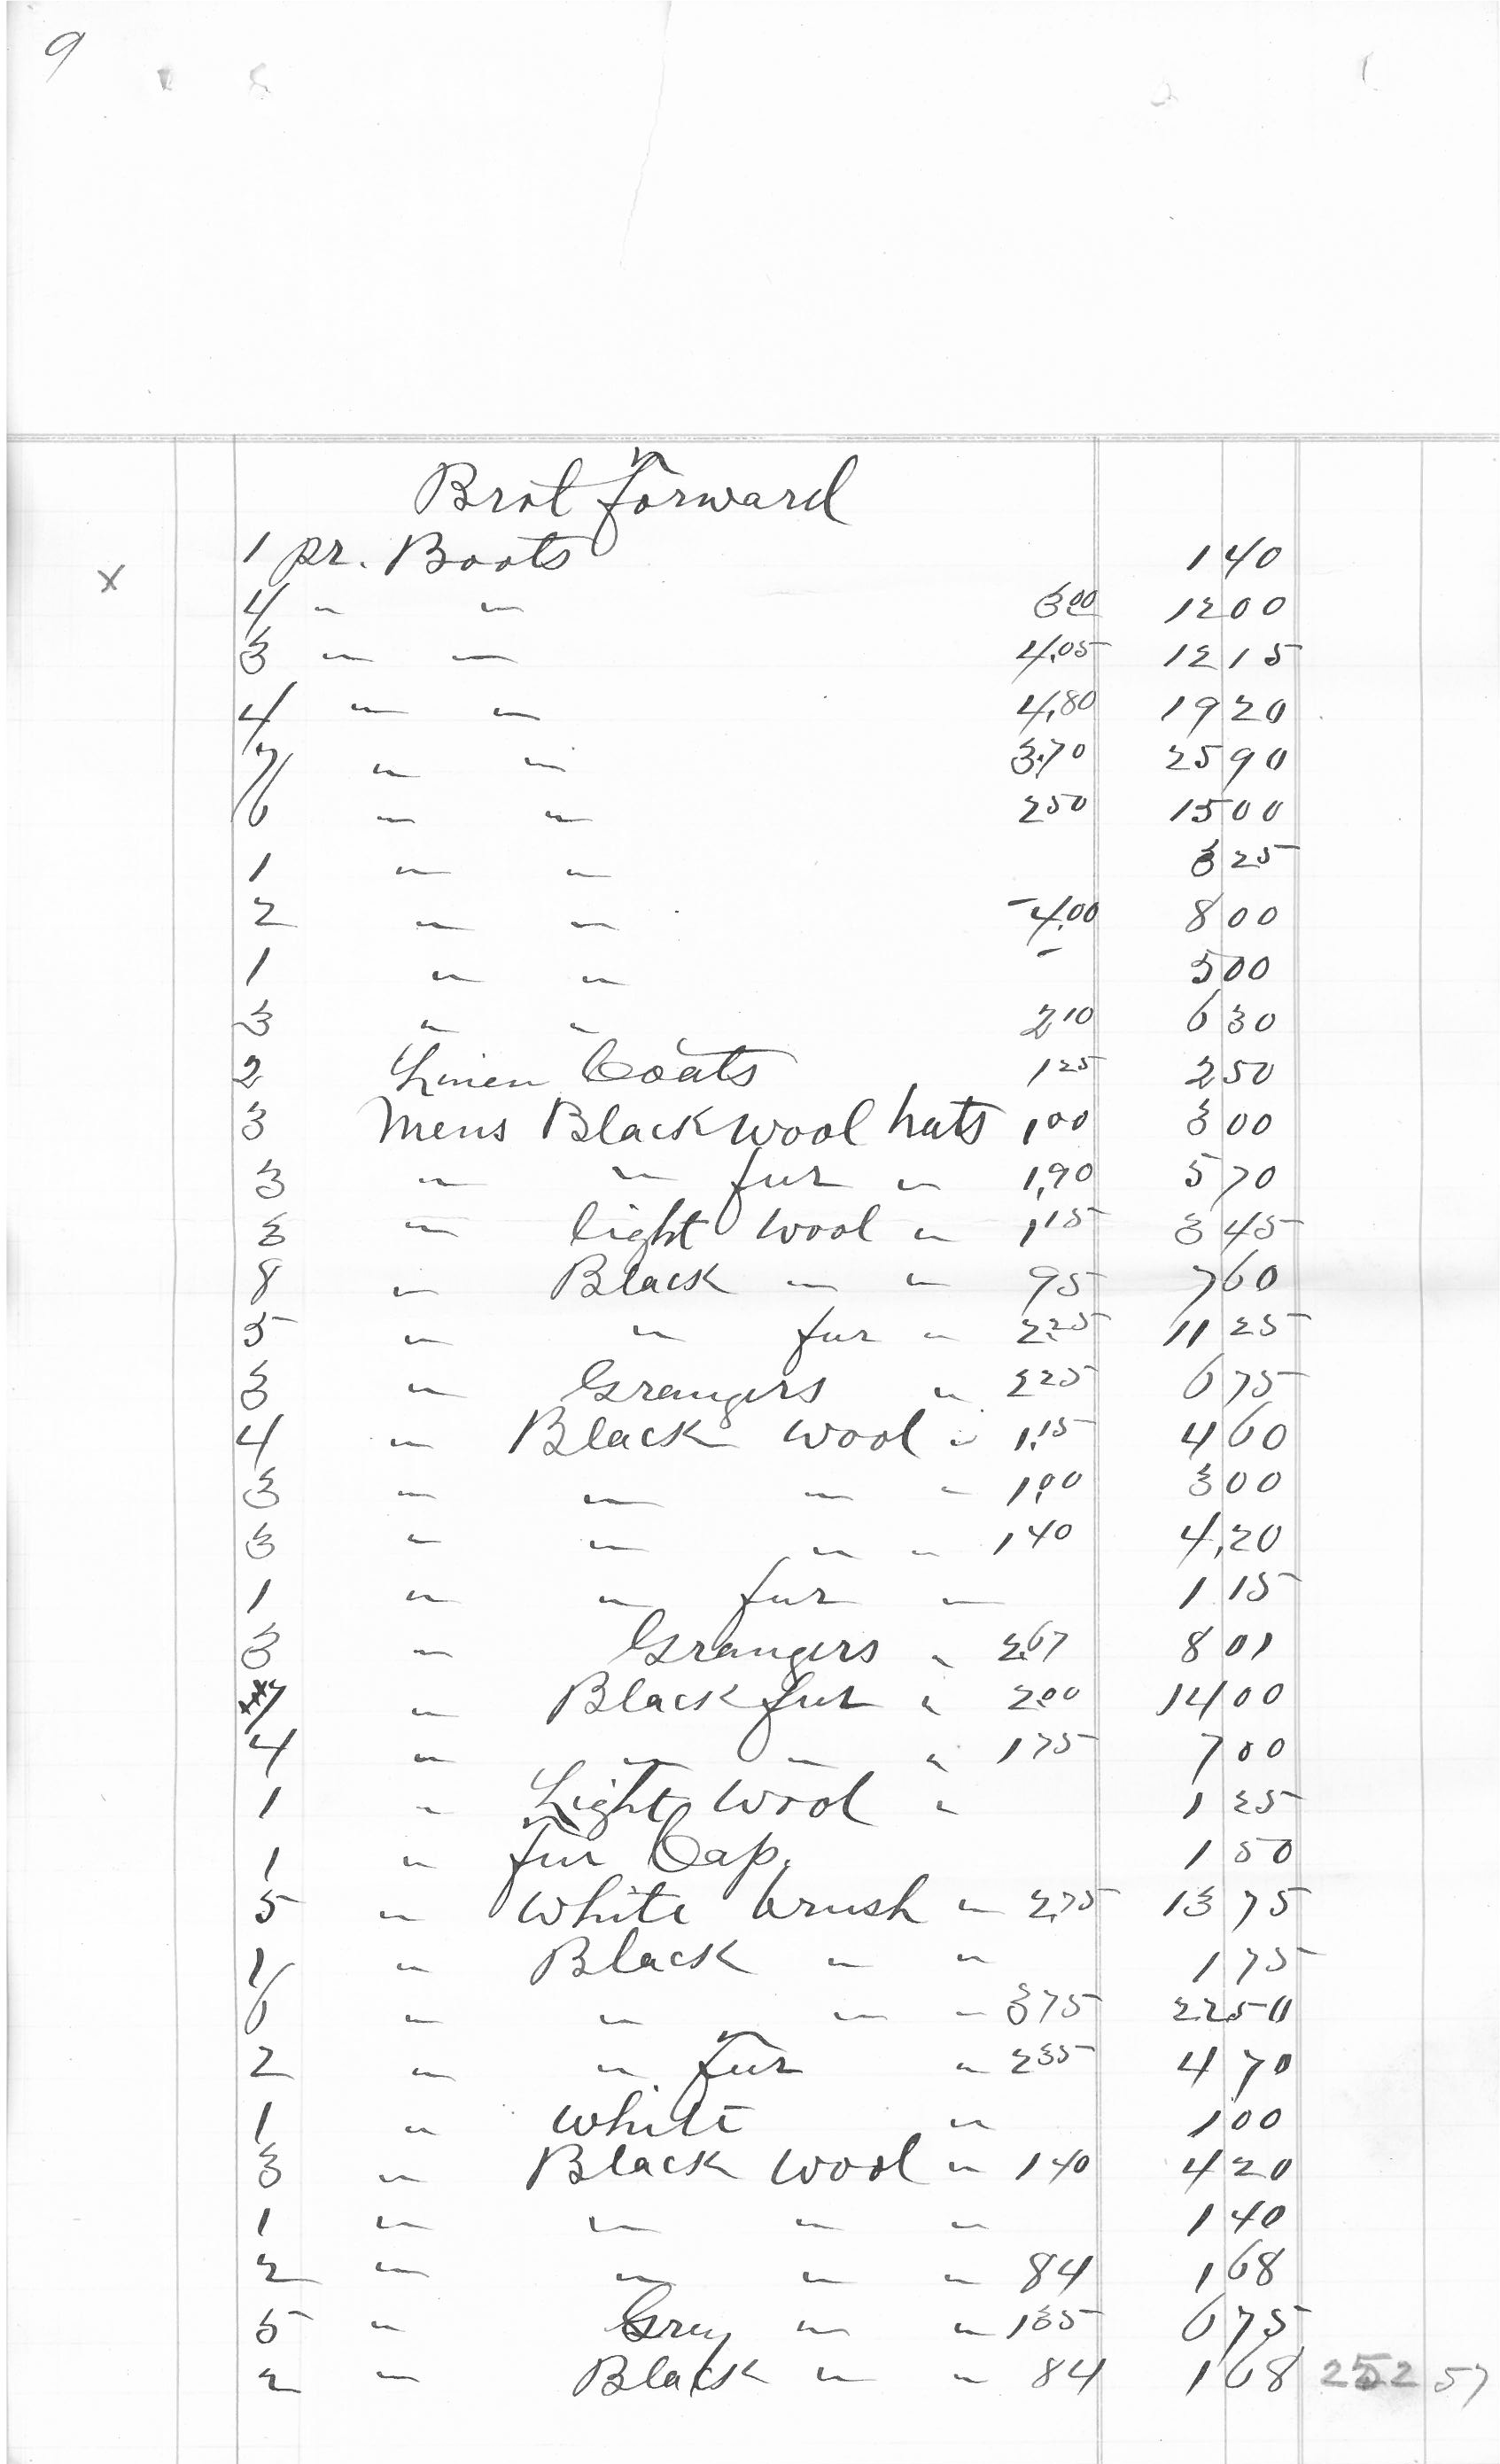 9
Brot forward
1 pr. Boots 1 40
x
4 " " 3 00 12 00
3 " " 4.05 12 15
4 " " 4.80 19 20
7 " " 3.70 25 90
6 " " 2 50 15 00
1 " " 3 25
2 " " 4.00 8 00
1 " " - 5 00
3 " " 2 10 6 30
2 Linen Coats 1 25 2 50
3 Mens Black wool hats 1 00 3 00
3 " " fur " 1.90 5 70
3 " light wool " 1 15 3 45
8 " Black " " 95 7 60
5 " " fur " 2.25 11 25
3 " Grangers " 2 25 6 75
4 " Black wool " 1.15 4 60
3 " " " " 1.00 3 00
3 " " " " 1 40 4.20
1 " " fur " 1 15
3 " Grangers " 2.67 8 01
7 " Black fur " 2.00 14 00
4 " " " " 1 75 7 00
1 " Light wool " 1 25
1 " fur Cap. 1 50
5 " white brush " 2.75 13 75
1 " Black " " 1 75
6 " " " " 3 75 22 50
2 " " fur " 2 35 4 70
1 " white " 1 00
3 " Black wool " 1 40 4 20
1 " " " " 1 40
2 " " " " 84 1 68
5 " Grey " " 1 35 6 75
2 " Black " " 84 1 68 252 57